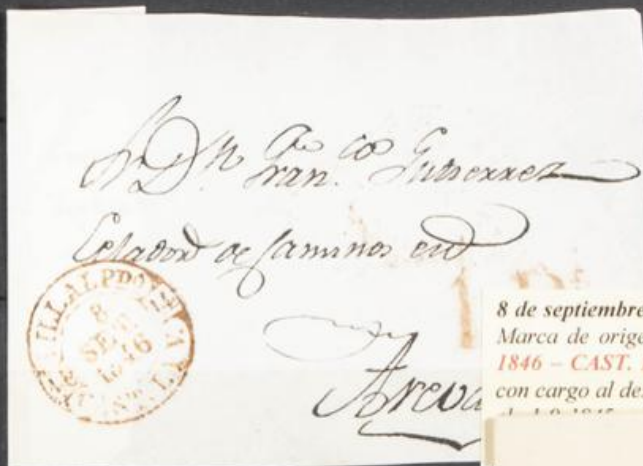 Sr. Dn. Franco. Gutierrez
Celador de Caminos en
Areva
VILLALPDO
8
SET
1846
CAST.
8 de septiembre
Marca de orig
1846 – CAST.
con cargo al de